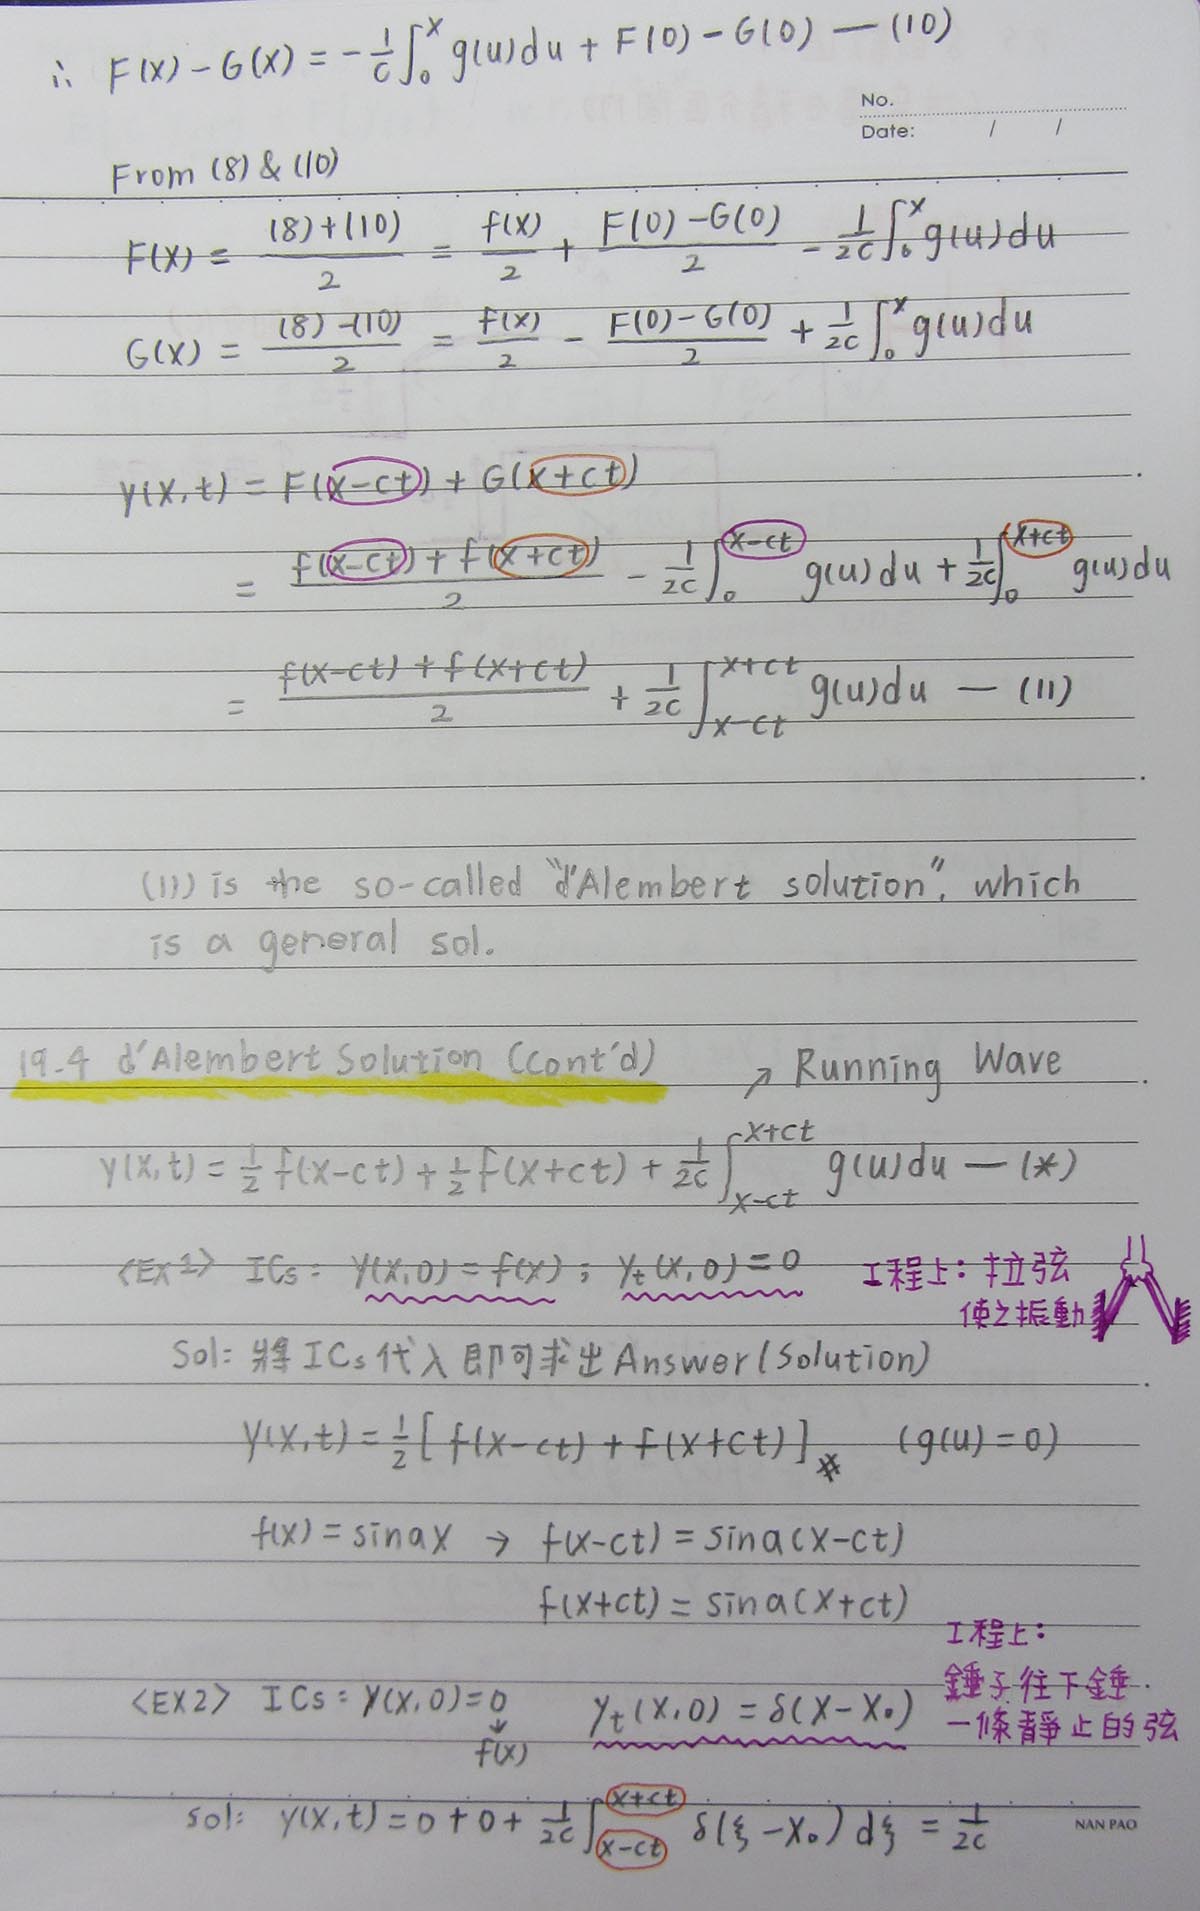 ∴ F(x) - G(x) = -1/c ∫₀ˣ g(u)du + F(0) - G(0) — (10)
No.
Date: / /
From (8) & (10)
F(x) = ((8)+(10))/2 = f(x)/2 + (F(0)-G(0))/2 - 1/2c ∫₀ˣ g(u)du
G(x) = ((8)-(10))/2 = f(x)/2 - (F(0)-G(0))/2 + 1/2c ∫₀ˣ g(u)du
y(x,t) = F(x-ct) + G(x+ct)
= (f(x-ct) + f(x+ct))/2 - 1/2c ∫₀^(x-ct) g(u)du + 1/2c ∫₀^(x+ct) g(u)du
= (f(x-ct) + f(x+ct))/2 + 1/2c ∫_(x-ct)^(x+ct) g(u)du — (11)
(11) is the so-called "d'Alembert solution", which
is a general sol.
19-4 d'Alembert Solution (Cont'd) ↗ Running Wave
y(x,t) = 1/2 f(x-ct) + 1/2 f(x+ct) + 1/2c ∫_(x-ct)^(x+ct) g(u)du — (*)
<EX1> ICs: y(x,0) = f(x) ; yₜ(x,0) = 0 工程上: 拉弦
使之振動
Sol: 將ICs代入即可求出Answer(Solution)
y(x,t) = 1/2 [f(x-ct) + f(x+ct)]# (g(u)=0)
f(x) = sinax → f(x-ct) = sina(x-ct)
f(x+ct) = sina(x+ct)
工程上:
錘子往下錘
<EX2> ICs: y(x,0)=0 yₜ(x,0) = δ(x-x₀) 一條靜止的弦
↓
f(x)
sol: y(x,t) = 0+0+ 1/2c ∫_(x-ct)^(x+ct) δ(ξ-x₀)dξ = 1/2c
NAN PAO